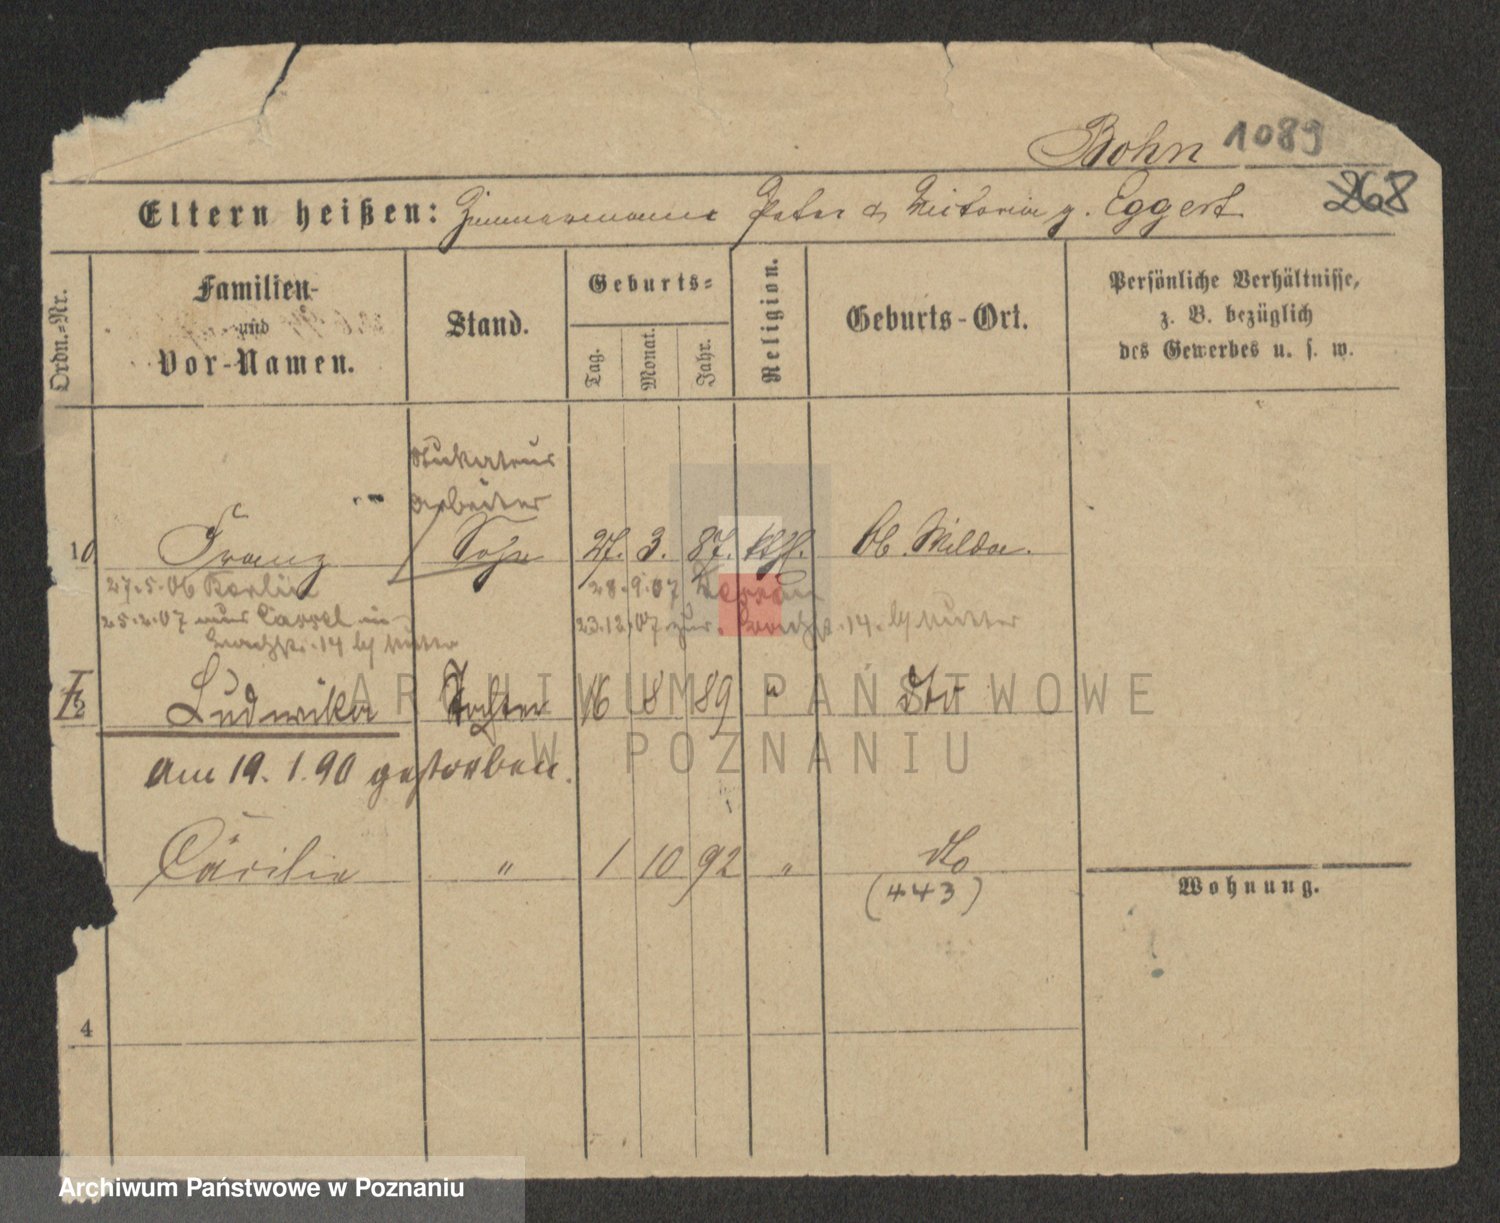 Bohn 1089
Eltern heißen: Zimmermann Peter & Victoria g. Eggert 268
Ordn.-Nr.
Familien-
und
Vor-Namen.
Stand.
Geburts-
Tag.
Monat.
Jahr.
Religion.
Geburts-Ort.
Persönliche Verhältnisse,
z. B. bezüglich
des Gewerbes u. s. w.
Stukateur
arbeiter
10 Franz Sohn 27. 3. 87. kth. Ob. Wilda.
27.5.06 Berlin 28.9.07
25.2.07 in 23.12.07 zur. 14. b/ Mutter
14 b/ Mutter
2 Ludwika Tochter 16 8 89 " dto
am 19. 1. 90 gestorben.
Cäcilie " 1 10 92 " dto
(443)
Wohnung.
4
ARCHIWUM PAŃSTWOWE
W POZNANIU
Archiwum Państwowe w Poznaniu